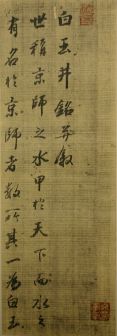 白玉井銘并敘
世稱京師之水甲於天下而水之
有名於京師者數所其一為白玉